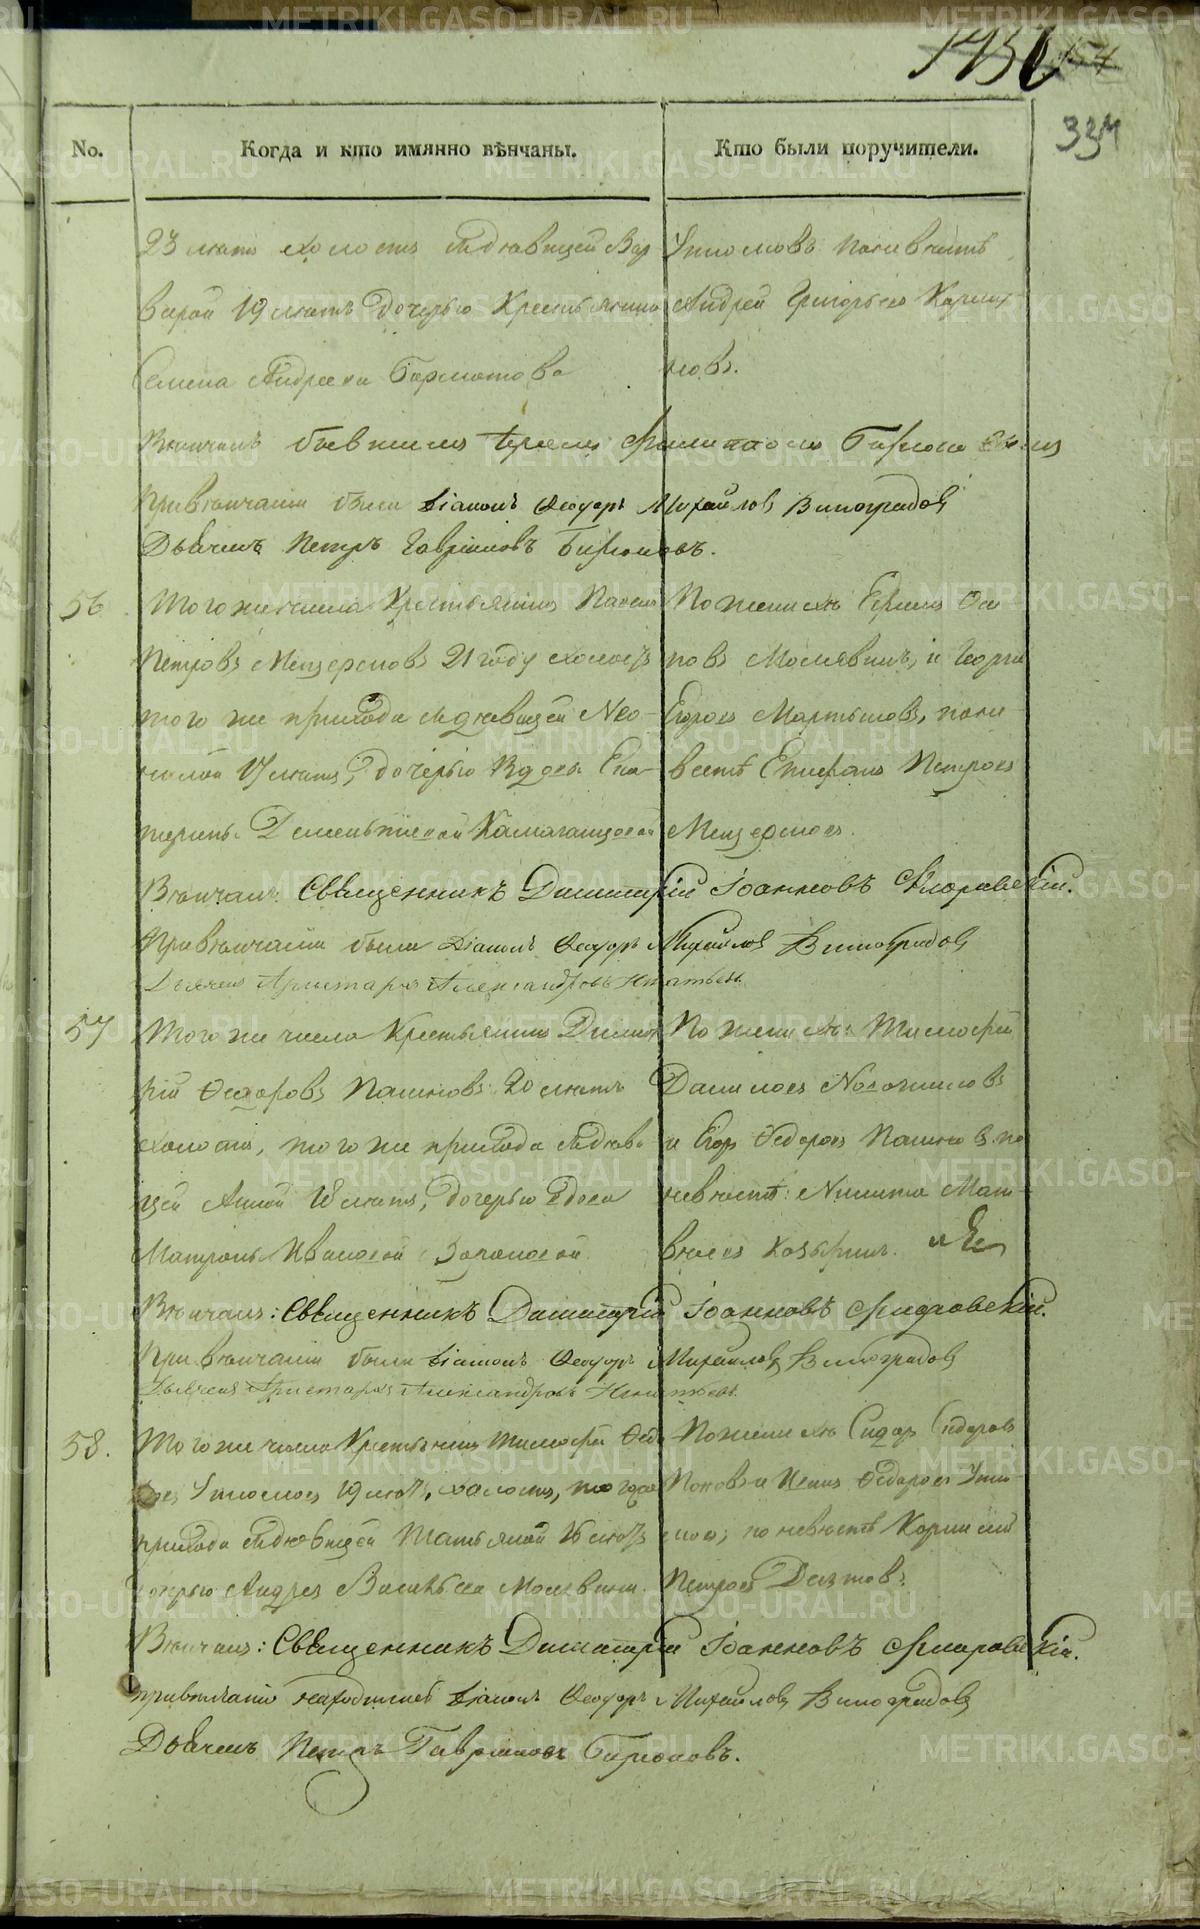 1436
154
334
No.
Когда и кто имянно вѣнчаны.
Кто были поручители.
23 лѣтъ холостъ съ дѣвицей Вар
варой 19 лѣтъ дочерью Крестьянина
Семена Андреева
Утюмовъ по невѣстѣ
Андрей Григорьевъ
Вѣнчалъ бывшимъ
При вѣнчаніи были Діаконъ Ѳеодоръ Михайловъ Виноградовъ
Дьячекъ Петръ Гавриловъ Бирюковъ.
56
Того же числа Крестьянинъ
Петровъ Мещеряковъ 21 году холостъ
того же прихода съ дѣвицей Нео-
нилой 17 лѣтъ, дочерью Вдовы Ека-
терины Дементьевой
По женихѣ Ефимъ Оси
повъ и Георгій
Егоровъ Мартышовъ, по не-
вестѣ Епифанъ Петровъ
Мещеряковъ.
Вѣнчалъ: Священникъ Димитрій Іоанновъ Флоровскій.
При вѣнчаніи были Діаконъ Ѳеодоръ Михайловъ Виноградовъ
Дьячекъ Аристархъ Александровъ Игнатьевъ
57
Того же числа Крестьянинъ Димит
рій Ѳедоровъ Пашковъ 20 лѣтъ
холостъ, того же прихода съ дѣви
цей Анной 18 лѣтъ, дочерью вдовы
Матроны Ивановой
По женихѣ: Тимофей
Даниловъ
и Егоръ Ѳедоровъ Пашковъ по
невѣстѣ: Никита Мат-
вѣевъ
Вѣнчалъ: Священникъ Димитрій Іоанновъ Флоровскій.
При вѣнчаніи были Діаконъ Ѳеодоръ Михайловъ Виноградовъ
Дьячекъ Аристархъ Александровъ Игнатьевъ
58.
Того же числа Крестьянинъ Тимофей Ѳедо
ровъ Утюмовъ 19 лѣтъ, холостъ, того же
прихода съ дѣвицей Татьяной 16 лѣтъ
дочерью Андрея Васильева
По женихѣ Сидоръ Сидоровъ
Поповъ и Ѳедоровъ Утю-
мовъ; по невѣстѣ Корнилій
Петровъ
Вѣнчалъ: Священникъ Димитрій Іоанновъ Флоровскій.
При вѣнчаніи находились Діаконъ Ѳеодоръ Михайловъ Виноградовъ
Дьячекъ Петръ Гавриловъ Бирюковъ.
METRIKI.GASO-URAL.RU